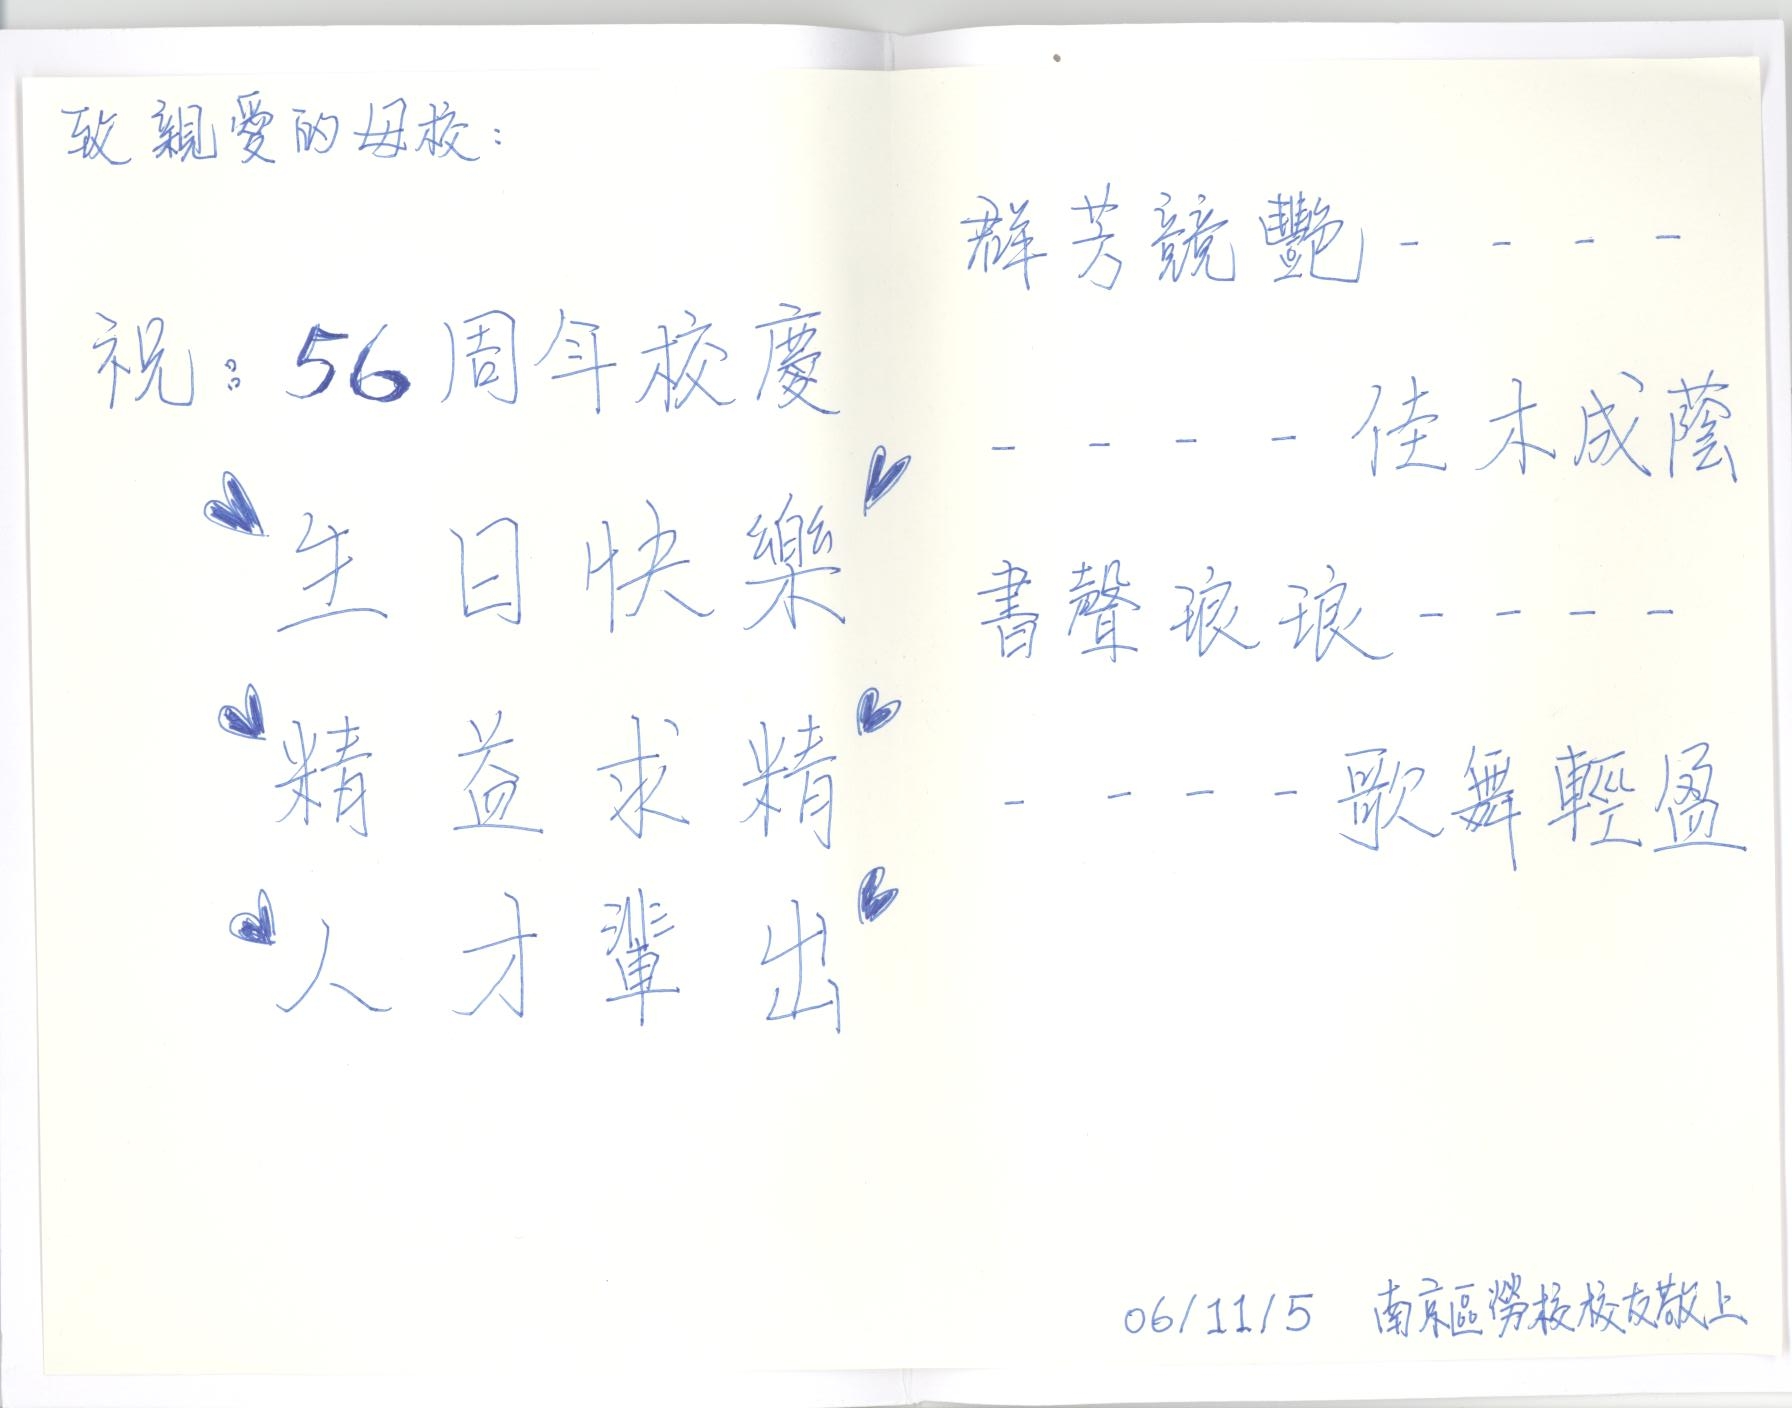 致親愛的母校：
祝：56周年校慶
生日快樂
精益求精
人才輩出
群芳競艷----
----佳木成蔭
書聲琅琅----
----歌舞輕盈
06/11/5 南京區勞校校友敬上